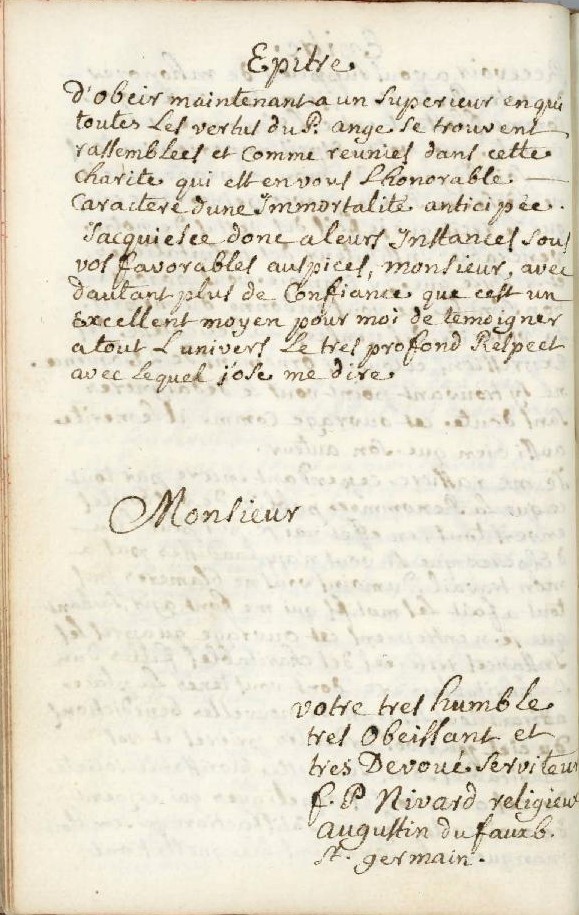 Epitre
d'obeir maintenant a un Superieur en qui
toutes Les vertus du P. ange se trouvent
rassemblees et Comme reunies dans cette
charite qui est en vous L'honorable
Caractere d'une Immortalité anticipée.
J'acquiesce donc a leurs Instances sous
vos favorables auspices, monsieur, avec
d'autant plus de Confiance que c'est un
Excellent moyen pour moi de temoigner
a tout L'univers Le tres profond Respect
avec Lequel j'ose me dire
Monsieur
votre tres humble
tres Obeissant et
tres Devoué Serviteur
f. P. Nivard religieux
augustin du fauxb.
st. germain.